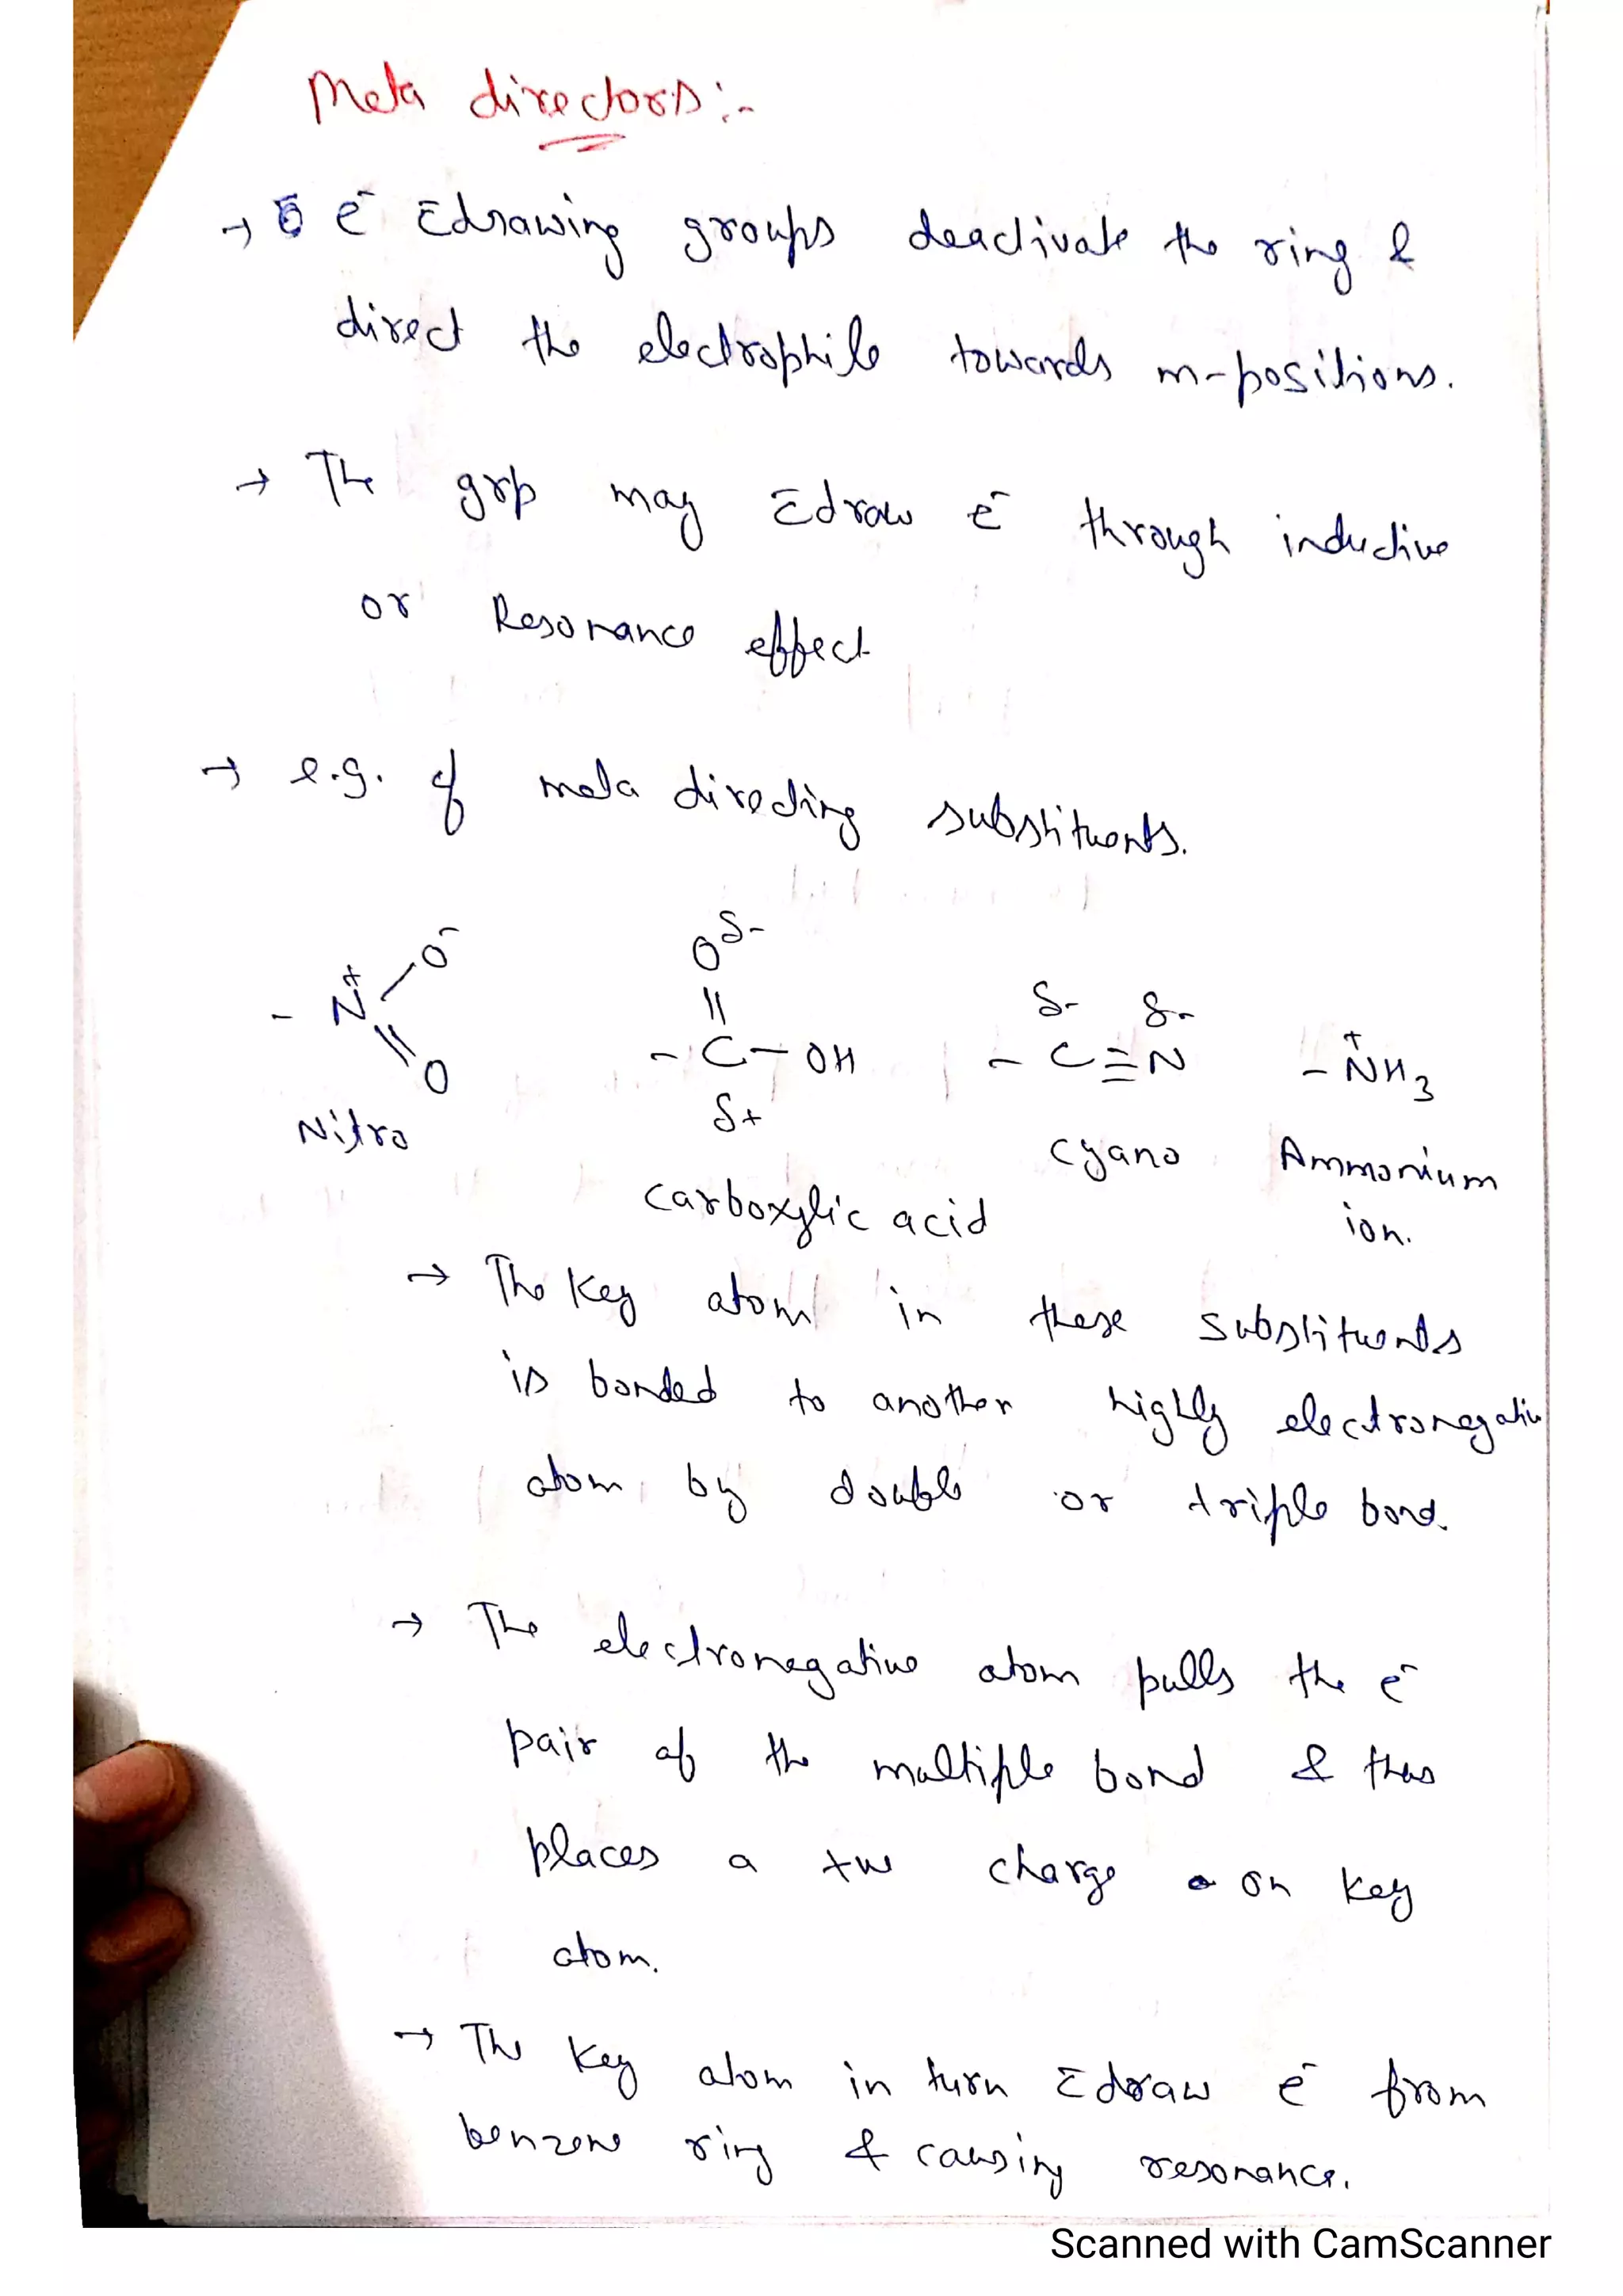 Meta directors :-
→ e⁻ c̄drawing groups deactivate the ring &
direct the electrophile towards m-positions.
→ The grp may c̄draw e⁻ through inductive
or Resonance effect
→ e.g. of meta directing substituents.
- N⁺ O⁻ O
Nitro
O δ-
- C - OH
δ+
carboxylic acid
δ- δ-
- C ≡ N
cyano
- N⁺H₃
Ammonium
ion.
→ The Key atom in these substituents
is bonded to another highly electronegative
atom by double or triple bond.
→ The electronegative atom pulls the e⁻
pair of the multiple bond & thus
places a +ve charge on key
atom.
→ The Key atom in turn c̄draw e⁻ from
benzene ring & causing resonance.
Scanned with CamScanner